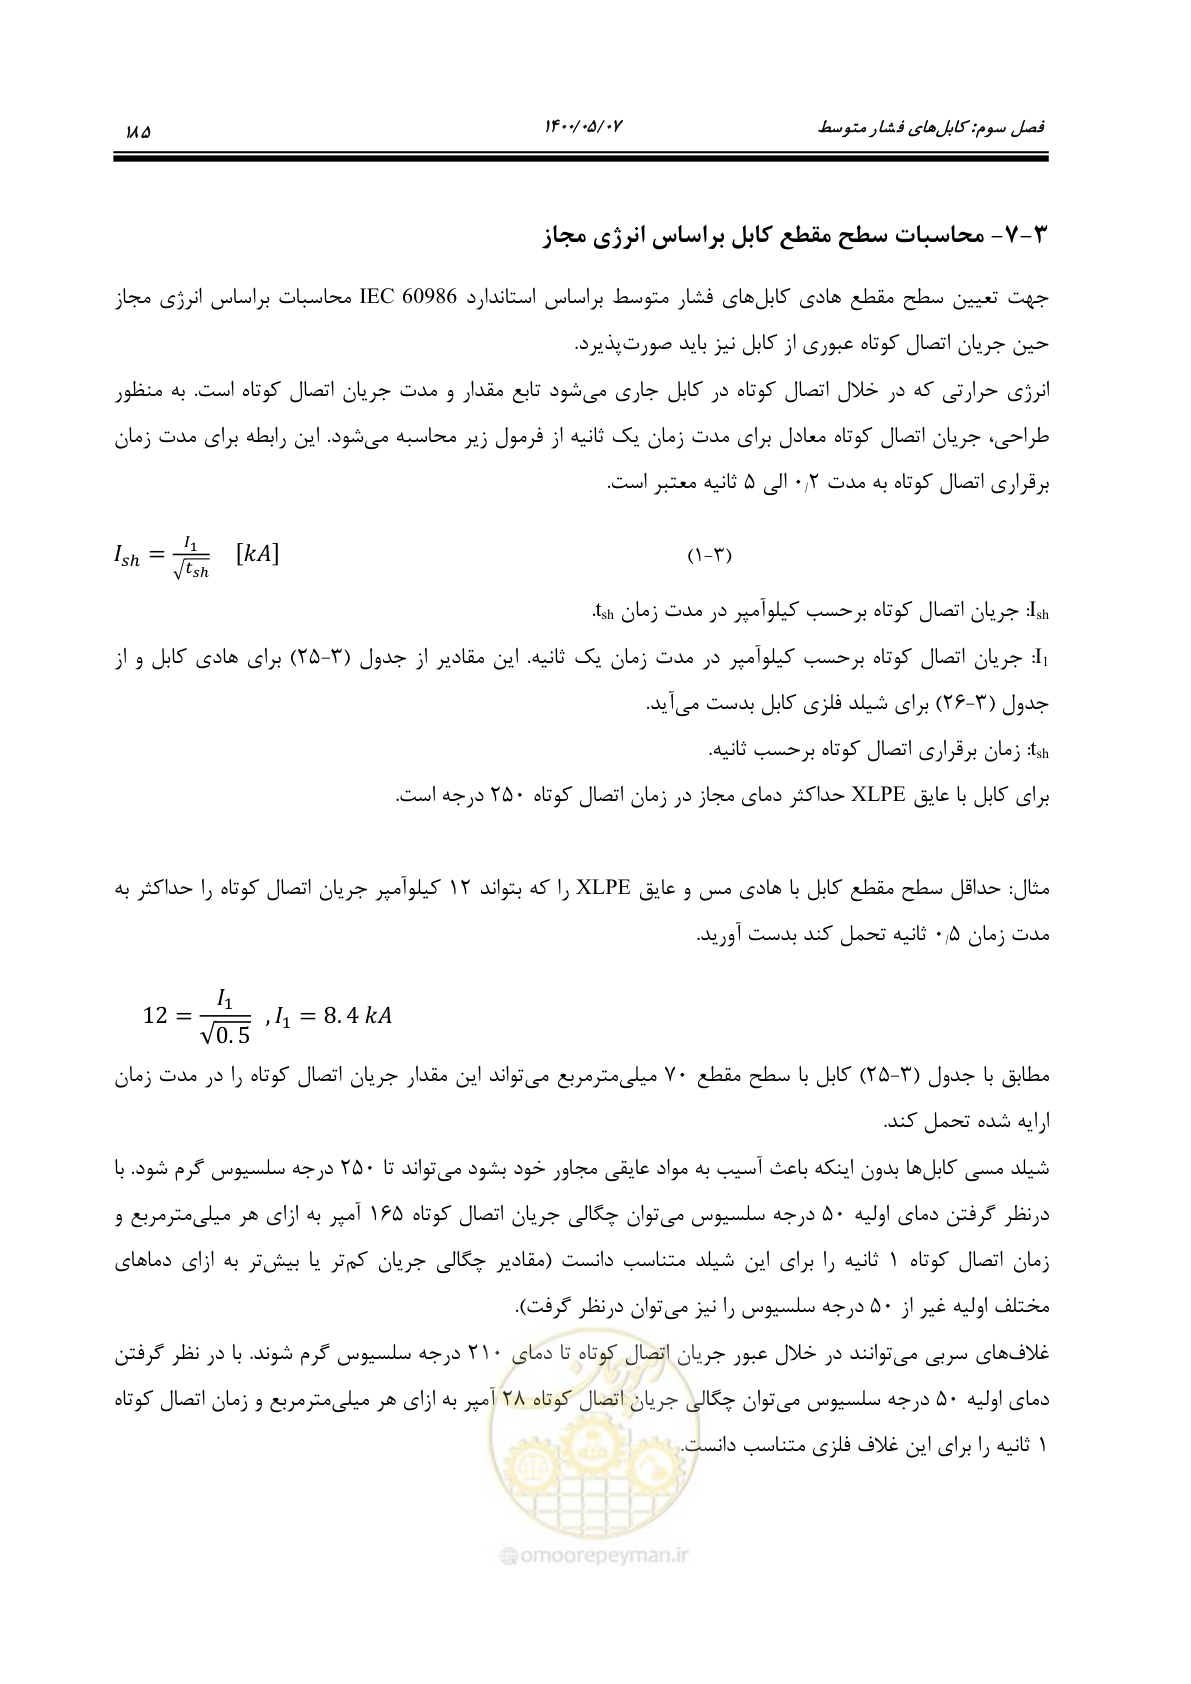 فصل سوم: کابل‌های فشار متوسط ۱۴۰۰/۰۵/۰۷ ۱۸۵
۳-۷- محاسبات سطح مقطع کابل براساس انرژی مجاز
جهت تعیین سطح مقطع هادی کابل‌های فشار متوسط براساس استاندارد IEC 60986 محاسبات براساس انرژی مجاز
حین جریان اتصال کوتاه عبوری از کابل نیز باید صورت‌پذیرد.
انرژی حرارتی که در خلال اتصال کوتاه در کابل جاری می‌شود تابع مقدار و مدت جریان اتصال کوتاه است. به منظور
طراحی، جریان اتصال کوتاه معادل برای مدت زمان یک ثانیه از فرمول زیر محاسبه می‌شود. این رابطه برای مدت زمان
برقراری اتصال کوتاه به مدت ۰٫۲ الی ۵ ثانیه معتبر است.
(۳-۱) I_sh = I_1/√t_sh [kA]
I_sh: جریان اتصال کوتاه برحسب کیلوآمپر در مدت زمان t_sh.
I_1: جریان اتصال کوتاه برحسب کیلوآمپر در مدت زمان یک ثانیه. این مقادیر از جدول (۳-۲۵) برای هادی کابل و از
جدول (۳-۲۶) برای شیلد فلزی کابل بدست می‌آید.
t_sh: زمان برقراری اتصال کوتاه برحسب ثانیه.
برای کابل با عایق XLPE حداکثر دمای مجاز در زمان اتصال کوتاه ۲۵۰ درجه است.
مثال: حداقل سطح مقطع کابل با هادی مس و عایق XLPE را که بتواند ۱۲ کیلوآمپر جریان اتصال کوتاه را حداکثر به
مدت زمان ۰٫۵ ثانیه تحمل کند بدست آورید.
12 = I_1/√0.5 , I_1 = 8.4 kA
مطابق با جدول (۳-۲۵) کابل با سطح مقطع ۷۰ میلی‌مترمربع می‌تواند این مقدار جریان اتصال کوتاه را در مدت زمان
ارایه شده تحمل کند.
شیلد مسی کابل‌ها بدون اینکه باعث آسیب به مواد عایقی مجاور خود بشود می‌تواند تا ۲۵۰ درجه سلسیوس گرم شود. با
درنظر گرفتن دمای اولیه ۵۰ درجه سلسیوس می‌توان چگالی جریان اتصال کوتاه ۱۶۵ آمپر به ازای هر میلی‌مترمربع و
زمان اتصال کوتاه ۱ ثانیه را برای این شیلد متناسب دانست (مقادیر چگالی جریان کم‌تر یا بیش‌تر به ازای دماهای
مختلف اولیه غیر از ۵۰ درجه سلسیوس را نیز می‌توان درنظر گرفت).
غلاف‌های سربی می‌توانند در خلال عبور جریان اتصال کوتاه تا دمای ۲۱۰ درجه سلسیوس گرم شوند. با در نظر گرفتن
دمای اولیه ۵۰ درجه سلسیوس می‌توان چگالی جریان اتصال کوتاه ۲۸ آمپر به ازای هر میلی‌مترمربع و زمان اتصال کوتاه
۱ ثانیه را برای این غلاف فلزی متناسب دانست.
@omoorepeyman.ir